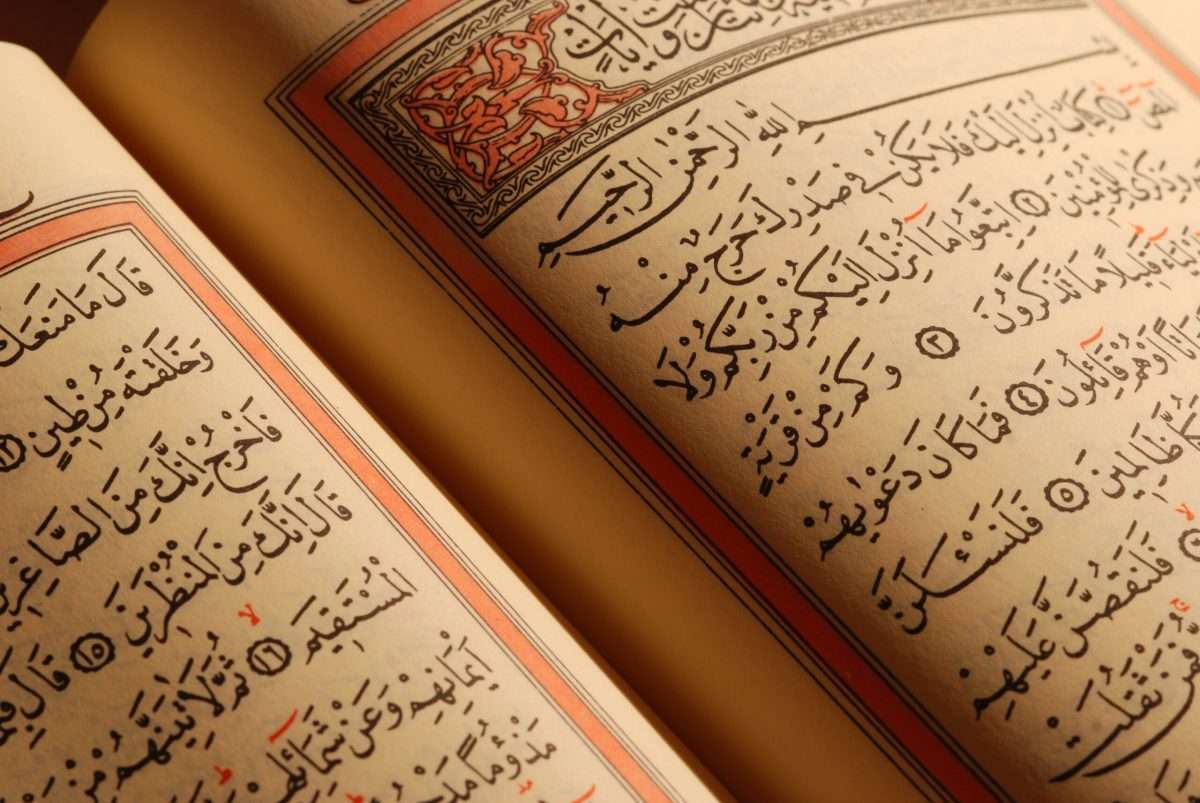 بِسْمِ اللّٰهِ الرَّحْمٰنِ الرَّحِيمِ
الٓمٓصٓ ١ كِتَابٌ اُنْزِلَ اِلَيْكَ فَلَا يَكُنْ فِي صَدْرِكَ حَرَجٌ مِنْهُ
وَذِكْرٰى لِلْمُؤْمِنِينَ ٢ اِتَّبِعُوا مَا اُنْزِلَ اِلَيْكُمْ مِنْ رَبِّكُمْ وَلَا
قَلِيلًا مَا تَذَكَّرُونَ ٣ وَكَمْ مِنْ قَرْيَةٍ
اَوْ هُمْ قَائِلُونَ ٤ فَمَا كَانَ دَعْوٰيهُمْ
ظَالِمِينَ ٥ فَلَنَسْـَٔلَنَّ
فَلَنَقُصَّنَّ عَلَيْهِمْ
فَمَنْ ثَقُلَتْ
قَالَ مَا مَنَعَكَ
وَخَلَقْتَهُ مِنْ طِينٍ ١٢
فَاخْرُجْ اِنَّكَ مِنَ الصَّاغِرِينَ
قَالَ اِنَّكَ مِنَ الْمُنْظَرِينَ ١٥ قَالَ فَبِمَا
الْمُسْتَقِيمَ ١٦ ثُمَّ لَاٰتِيَنَّهُمْ مِنْ
اَيْمَانِهِمْ وَعَنْ شَمَائِلِهِمْ
مَذْؤُمًا مَدْحُورًا